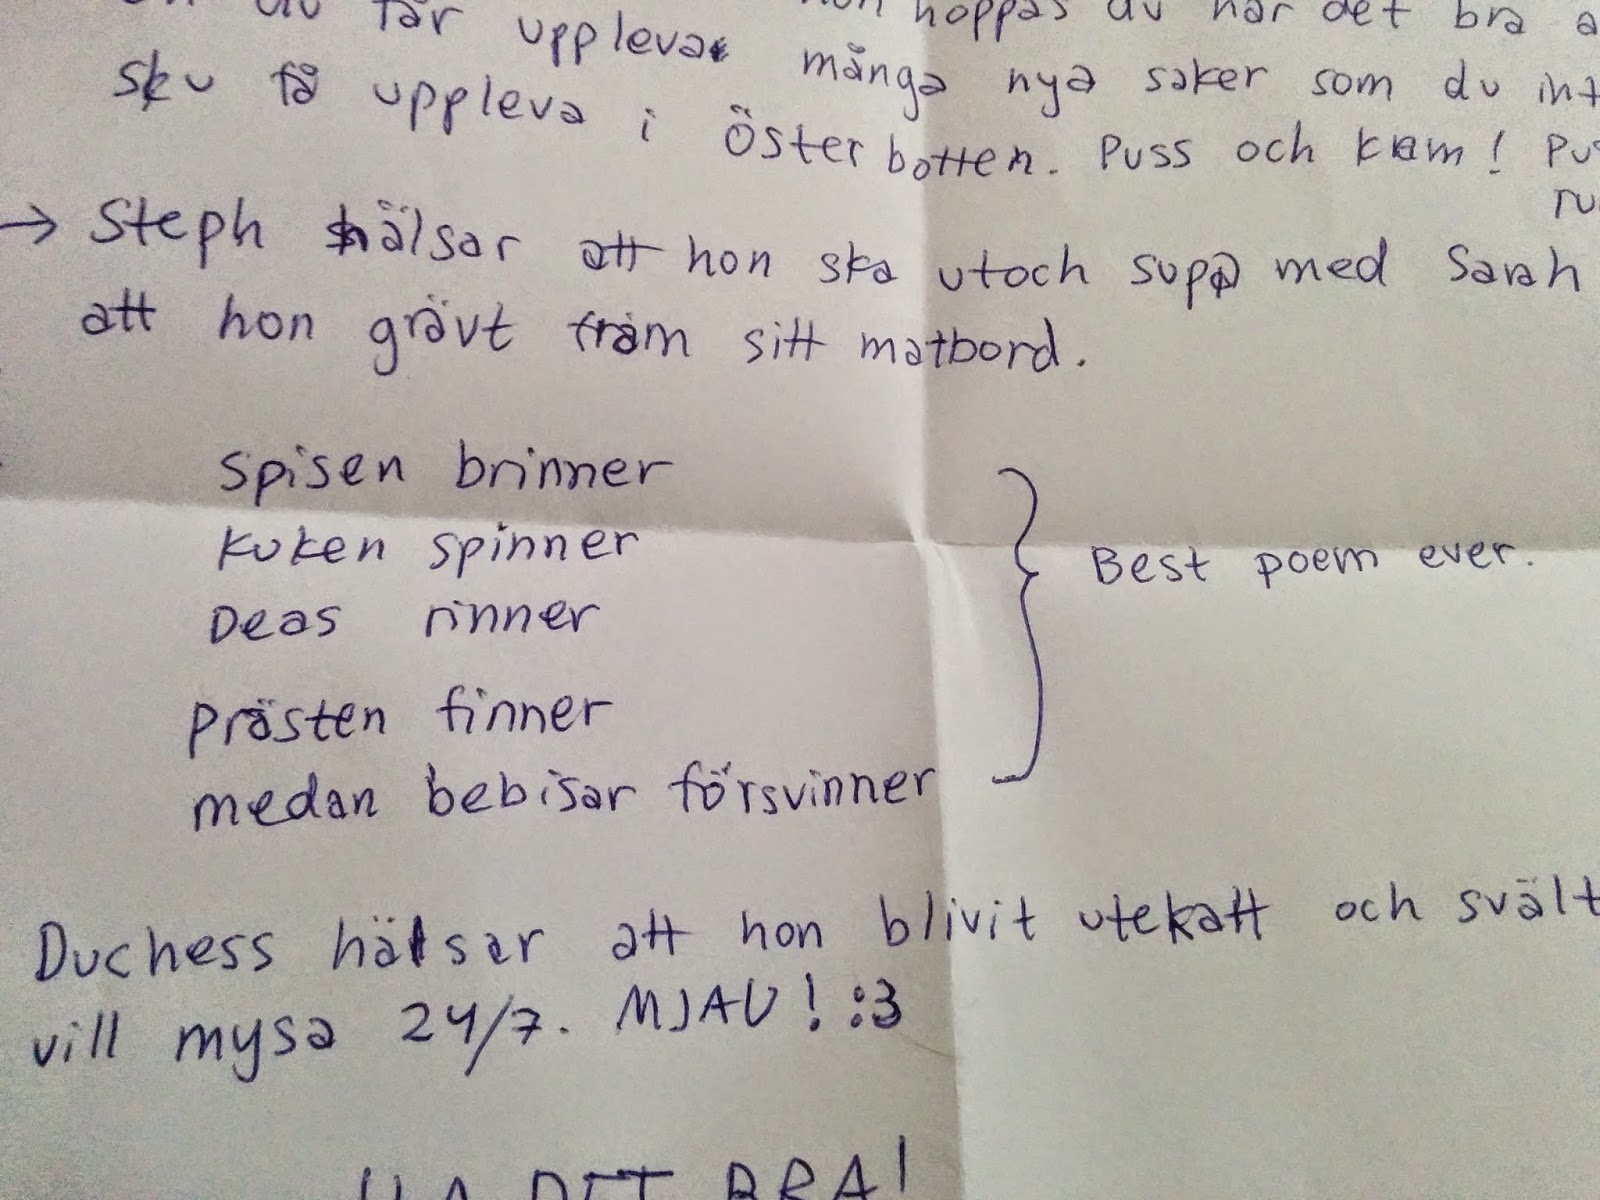 du får uppleva
hoppas du har det bra
många nya saker som du
sku få uppleva i Österbotten. Puss och kram!
→ Steph hälsar att hon ska utoch supa med Sarah
att hon grävt fram sitt matbord.
Spisen brinner
Kuken spinner
Deas rinner
Best poem ever.
Prästen finner
medan bebisar försvinner
Duchess hälsar att hon blivit utekatt och
vill mysa 24/7. MJAU! :3
HA DET BRA!